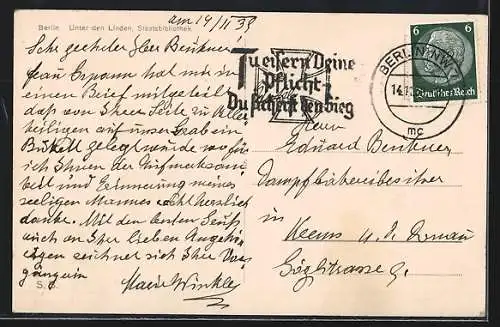 Berlin Unter den Linden, Staatsbibliothek
am 14/II 39
Sehr geehrter Herr Benkner
Frau Ermann hat mir in
einen Brief mitgeteilt
daß von Ihrer Seite zu Aller
heiligen auf unser Grab ein
gelegt wurde wofür
ich Ihnen der Aufmerksam
keit und Erinnerung meines
seeligen Mannes herzlich
danke. Mit den besten Grüß
auch an Ihre lieben Angehö
rigen zeichnet sich Ihre
Marie Winkler
S.
Tu eisern Deine
Pflicht
Du sicherst den Sieg
BERLIN NW 7
14.1
mc
6 6
Deutsches Reich
Herrn
Eduard Benkner
Dampfbäckereibesitzer
in
Krems a. d. Donau
Göglstrasse 9.